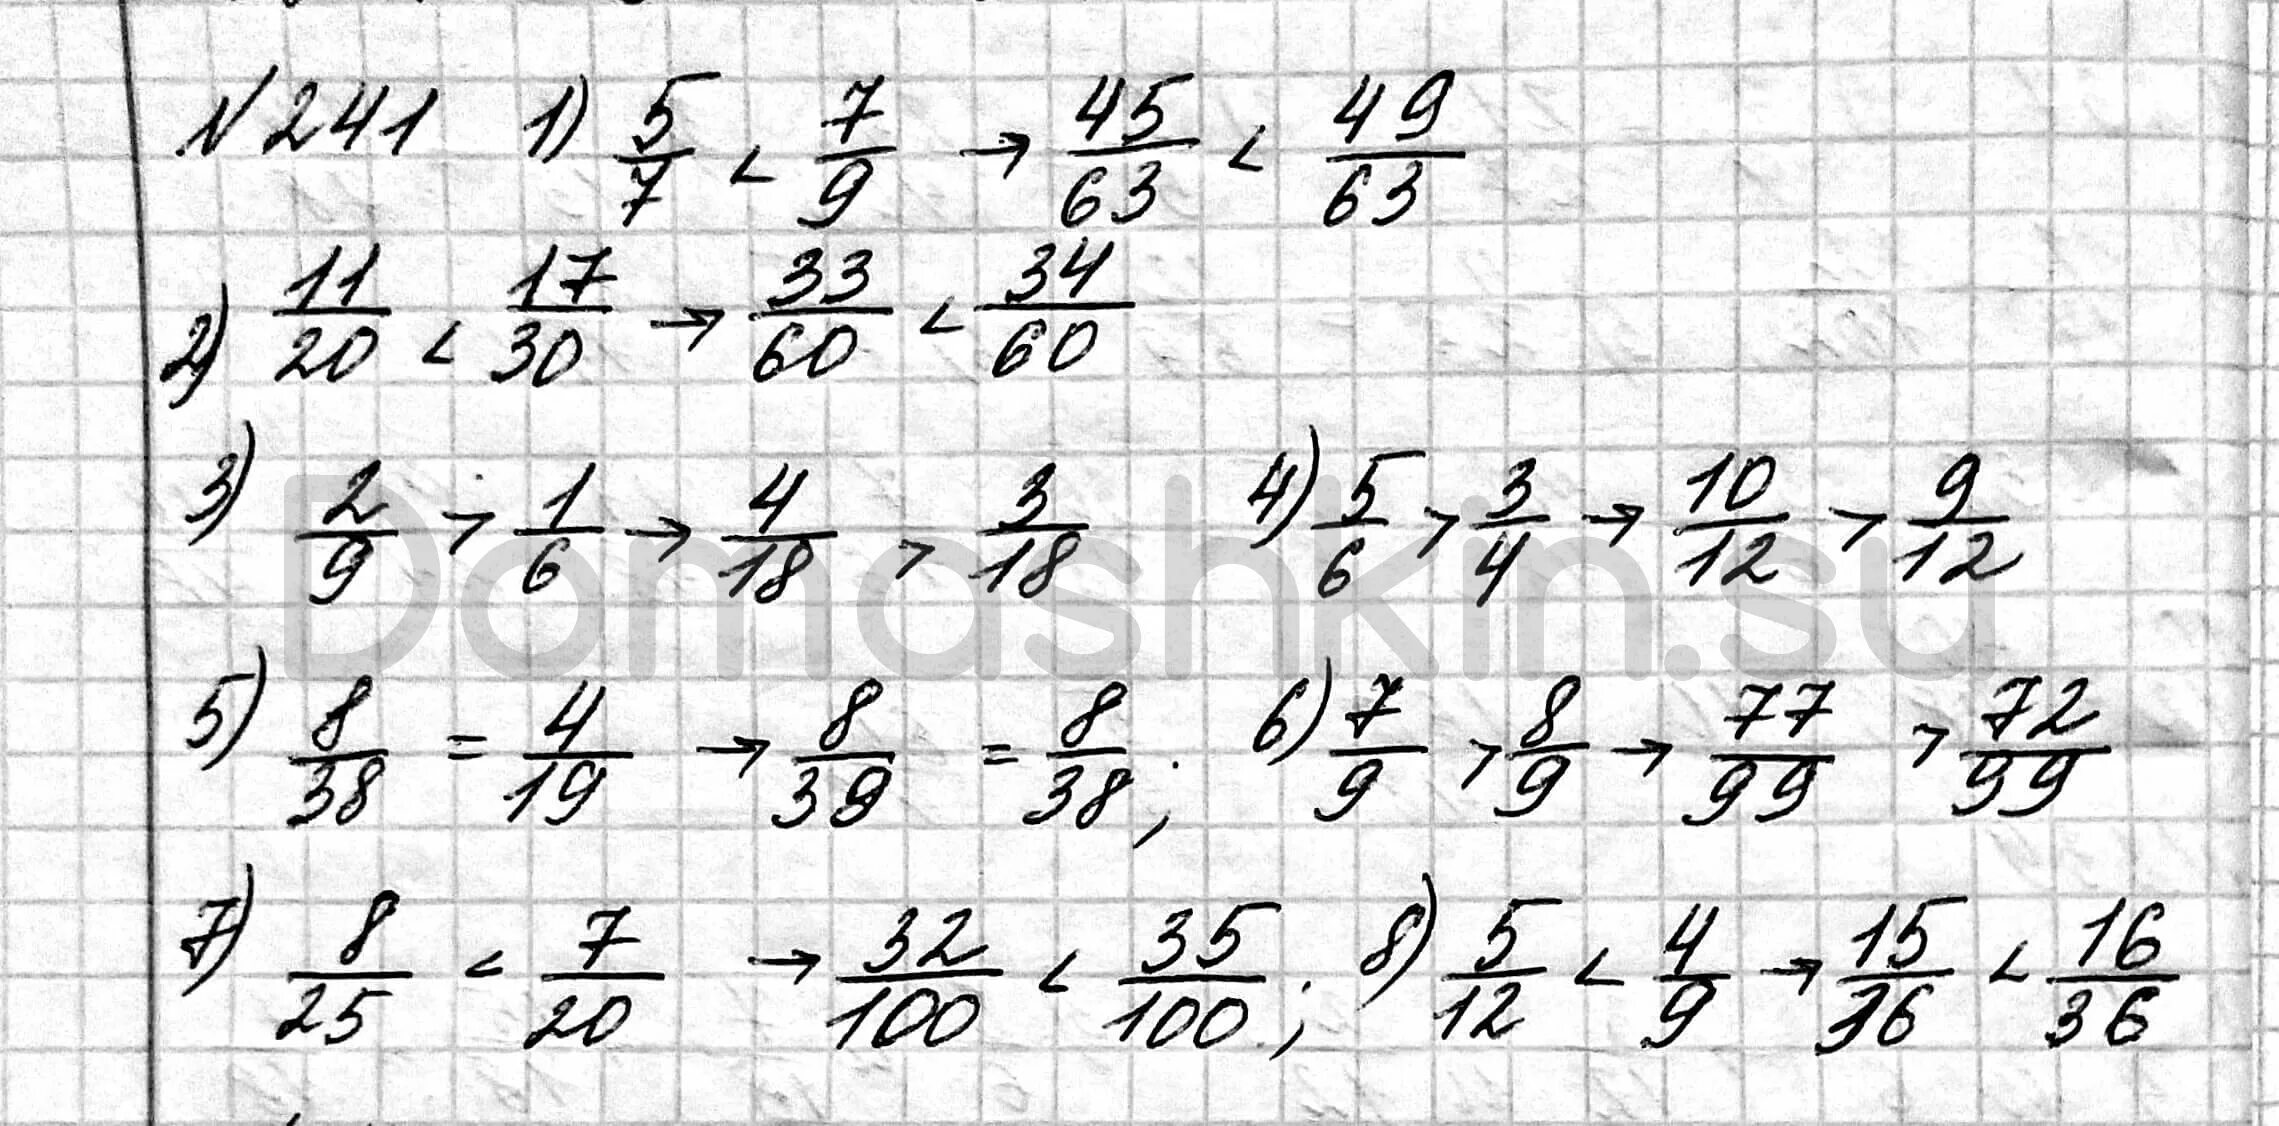 №241 1) 5/7 < 7/9 → 45/63 < 49/63
2) 11/20 < 17/30 → 33/60 < 34/60
3) 2/9 > 1/6 → 4/18 > 3/18 4) 5/6 > 3/4 → 10/12 > 9/12
Domashkin.su
5) 8/38 = 4/19 → 8/38 = 8/38; 6) 7/9 > 8/9 → 77/99 > 72/99
7) 8/25 < 7/20 → 32/100 < 35/100; 8) 5/12 < 4/9 → 15/36 < 16/36